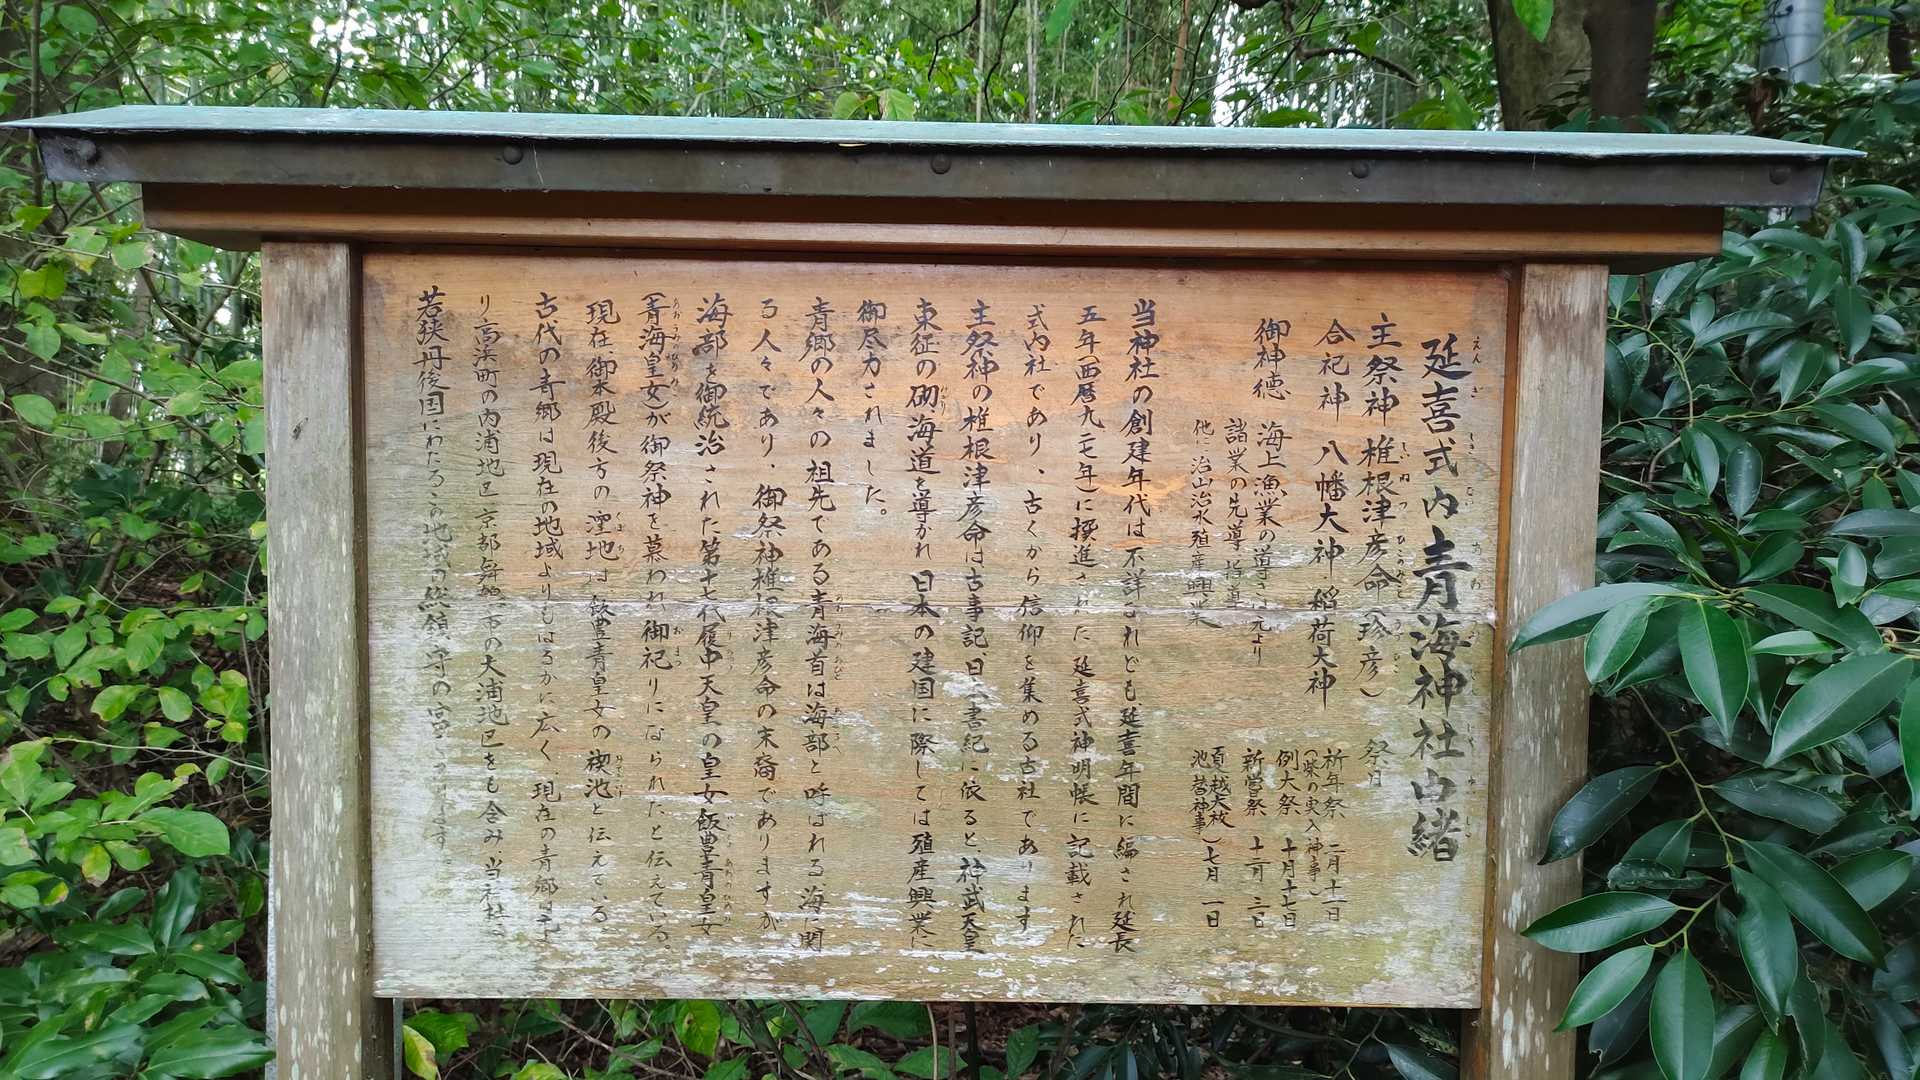 延喜式内青海神社由緒
主祭神 椎根津彦命(珍彦)
合祀神 八幡大神・稲荷大神
御神徳 海上漁業の導きは元より
諸業の先導・指導
他に治山治水殖産興業
祭日
祈年祭 二月十一日
(の柴の実入神事)
例大祭 十月十七日
新嘗祭 十二月 三日
夏越大祓
池替神事)七月 一日
当神社の創建年代は不詳なれども延喜年間に編され延長
五年(西暦九二七年)に撰進された延喜式神明帳に記載された
式内社であり、古くから信仰を集める古社であります
主祭神の椎根津彦命は古事記、日本書紀に依ると、神武天皇
東征の砌、海道を導かれ日本の建国に際しては殖産興業に
御尽力されました。
青郷の人々の祖先である青海首は海部と呼ばれる海に関
る人々であり、御祭神椎根津彦命の末裔でありますが
海部を御統治された第十七代履中天皇の皇女飯豊青皇女
(青海皇女)が御祭神を慕われ御祀りになられたと伝えている、
現在、御本殿後方の澪地は飯豊青皇女の禊池と伝えている、
古代の青郷は現在の地域よりもはるかに広く、現在の青郷は元よ
り高浜町の内浦地区京都舞鶴市の大浦地区をも含み当社は
若狭丹後国にわたるこの地域の総鎮守の宮であります。